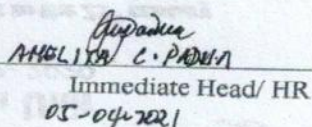 AMELITA C. PADUA
Immediate Head/ HR
05-04-2021